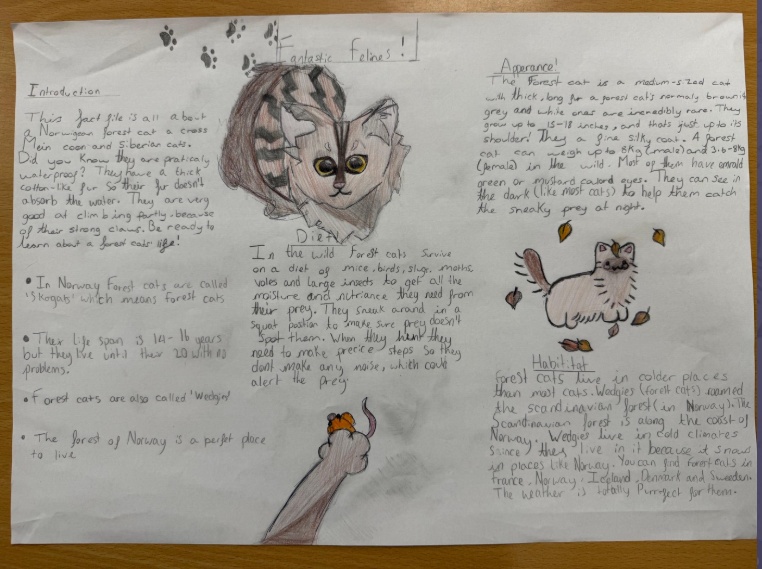 Fantastic Felines!
Introduction
This fact file is all about
a Norwigan forest cat a cross
Mein coon and Siberian cats.
Did you know they are praticaly
waterproof? They have a thick
cotton-like fur so their fur doesn't
absorb the water. They are very
good at climbing partly because
of their strong claws. Be ready to
learn about a forest cats life!
• In Norway Forest cats are called
'Skogats' which means forest cats
• Their life span is 14-16 years
but they live until their 20 with no
problems.
• Forest cats are also called 'Wedgies'
• The forest of Norway is a perfet place
to live
Diet
In the wild Forest cats survive
on a diet of mice, birds, slugs, moths,
voles and large insects to get all the
moisture and nutriance they need from
their prey. They sneak around in a
squat position to make sure prey doesn't
spot them. When they hunt they
need to make precice steps so they
dont make any noise, which could
alert the prey.
Apperance!
The Forest cat is a medum-sized cat
with thick, long fur a forest cat's normaly brown
grey and white ones are incredibly rare. They
grow up to 15-18 inches, and thats just up to its
shoulder! They a fine silky coat. A forest
cat can weigh up to 8Kg (male) and 3.6-8kg
(female) in the wild. Most of them have emrald
green or mustard colord eyes. They can see in
the dark (like most cats) to help them catch
the sneaky prey at night.
Habititat
Forest cats live in colder places
than most cats. Wedgies (forest cats) roamed
the scandinavian forest (in Norway). The
Scandinavian forest is along the coast of
Norway. Wedgies live in cold climates
since they live in it because it snows
in places like Norway. You can find forest cats in
france, Norway, Iceland, Denmark and Sweeden.
The weather is totally Purrfect for them.